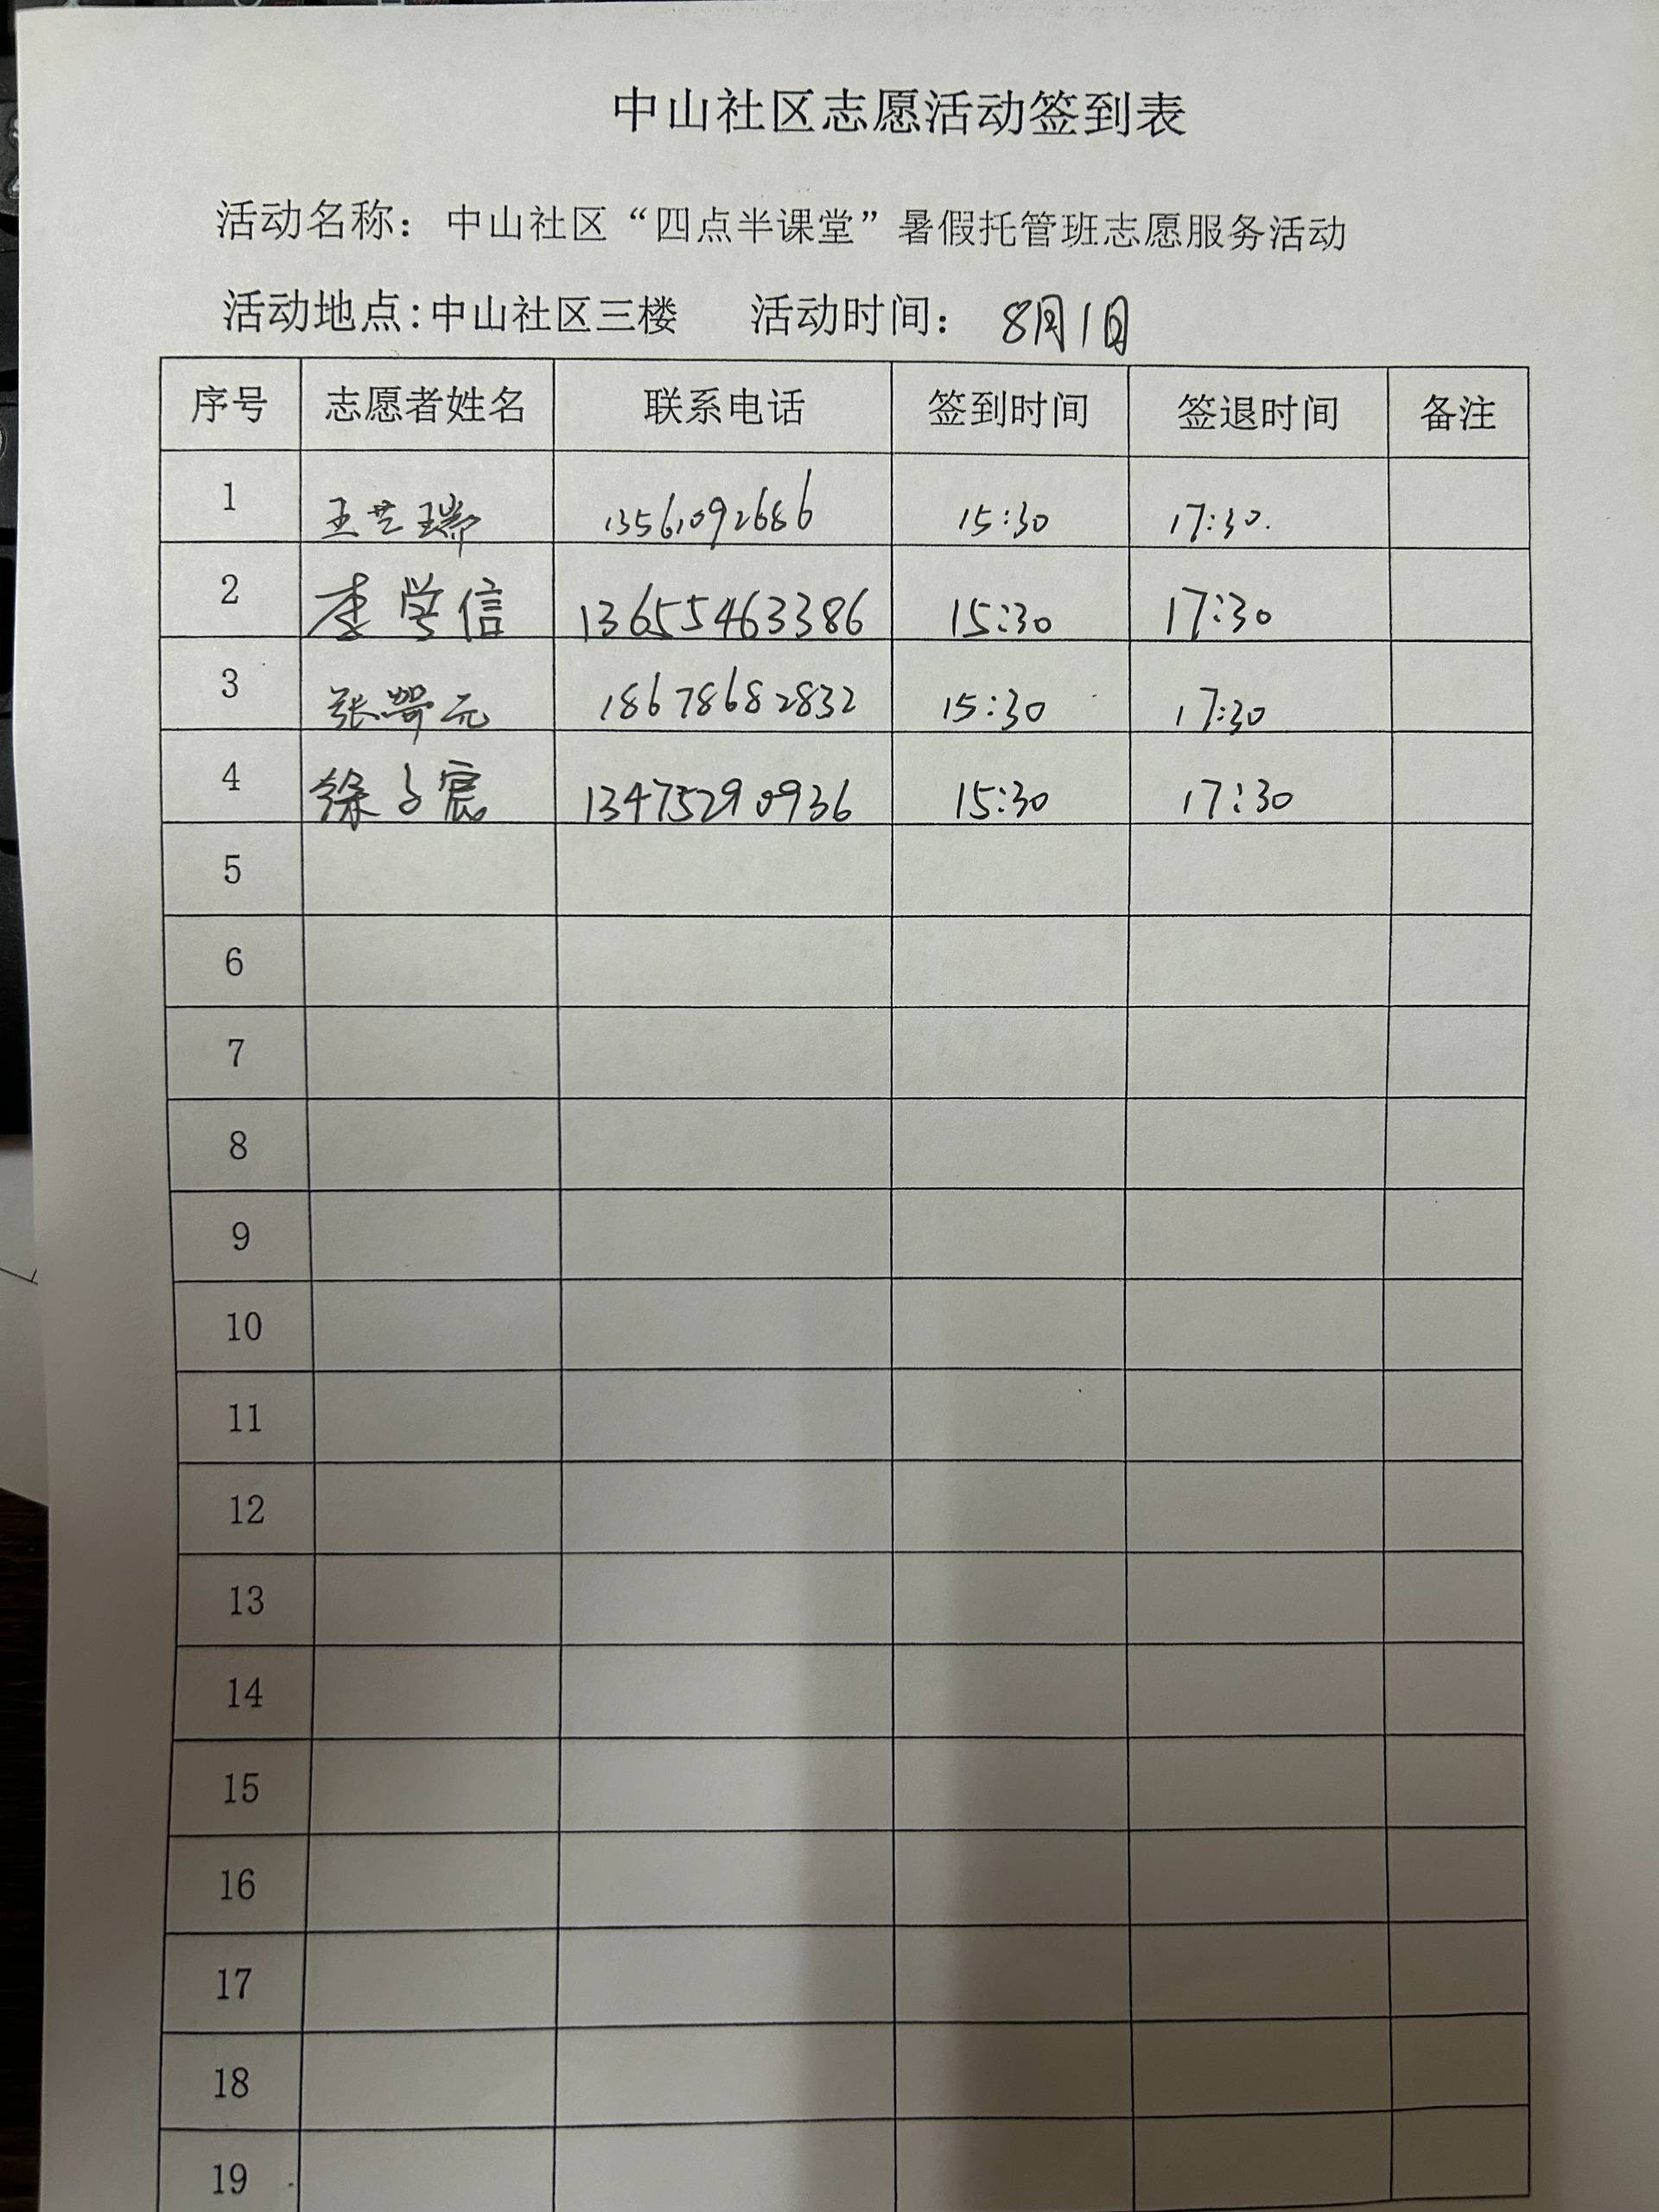 中山社区志愿活动签到表
活动名称：中山社区“四点半课堂”暑假托管班志愿服务活动
活动地点:中山社区三楼 活动时间：8月1日
序号 志愿者姓名 联系电话 签到时间 签退时间 备注
1 王艺瑞 13561092686 15:30 17:30.
2 李学信 13655463386 15:30 17:30
3 张元 18678682832 15:30 17:30
4 徐子宸 13475290936 15:30 17:30
5
6
7
8
9
10
11
12
13
14
15
16
17
18
19